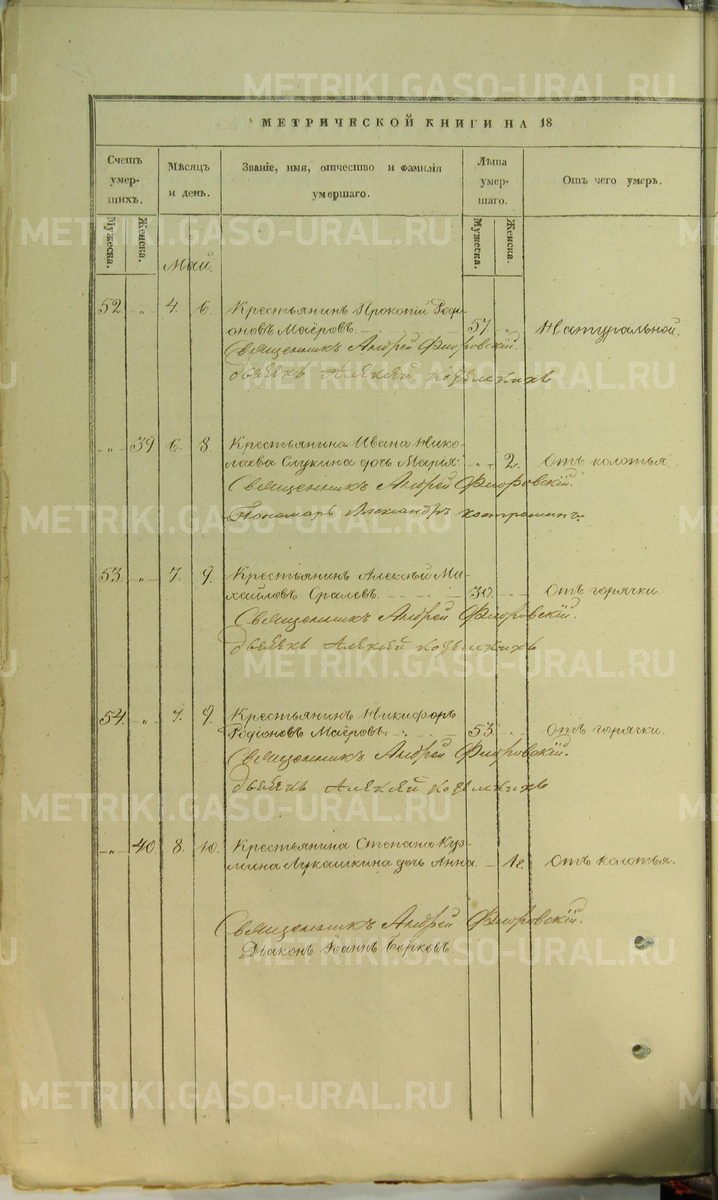 METRIKI.GASO-URAL.RU
МЕТРИЧЕСКОЙ КНИГИ НА 18
Счетъ умер- шихъ.
Мужеска. Женска.
Мѣсяцъ и день.
Званіе, имя, отчество и фамилія умершаго.
Лѣта умер- шаго.
Мужеска. Женска.
Отъ чего умеръ.
Май.
52 „ 4. 6. Крестьянинъ Прокопій Роди-
оновъ Маёровъ. 57 „ Натуральной.
Священникъ Андрей Флоровскій.
дьячекъ Алексѣй
„ 39 6. 8. Крестьянина Ивана Нико-
лаева дочь Марья. „ 2. Отъ колотья.
Священникъ Андрей Флоровскій.
Пономарь Александръ Костроминъ.
53. „ 7. 9. Крестьянинъ Алексѣй Ми-
хайловъ 30. „ Отъ горячки.
Священникъ Андрей Флоровскій.
дьячекъ Алексѣй
54. „ 7. 9. Крестьянинъ Никифоръ
Родіоновъ Маёровъ. 53. „ Отъ горячки.
Священникъ Андрей Флоровскій.
дьячекъ Алексѣй
„ 40 8. 10. Крестьянина Степана Куз-
мина Лукашкина дочь Анна. 1г. Отъ колотья.
Священникъ Андрей Флоровскій.
Діаконъ Іоаннъ Борковъ